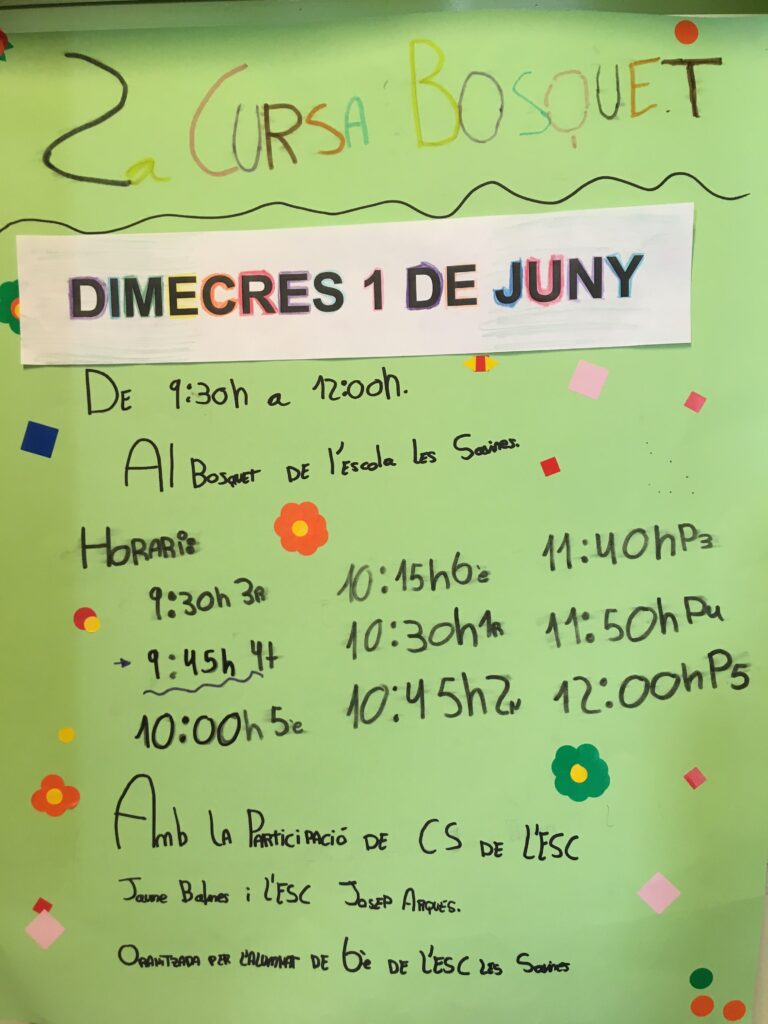 2a CURSA BOSQUET
DIMECRES 1 DE JUNY
DE 9:30h a 12:00h.
Al BOSQUET DE l'ESCOLA LES Savines.
HORARIS
9:30h 3R 10:15h 6è 11:40h P3
→ 9:45h 4t 10:30h 1R 11:50h P4
10:00h 5è 10:45h 2N 12:00h P5
Amb LA PARTICIPACIÓ DE CS DE L'ESC
Jaume Balmes i l'ESC JOSEP ARQUES.
ORANTZADA PER L'ALUMNAT DE 6è DE L'ESC LES Savines